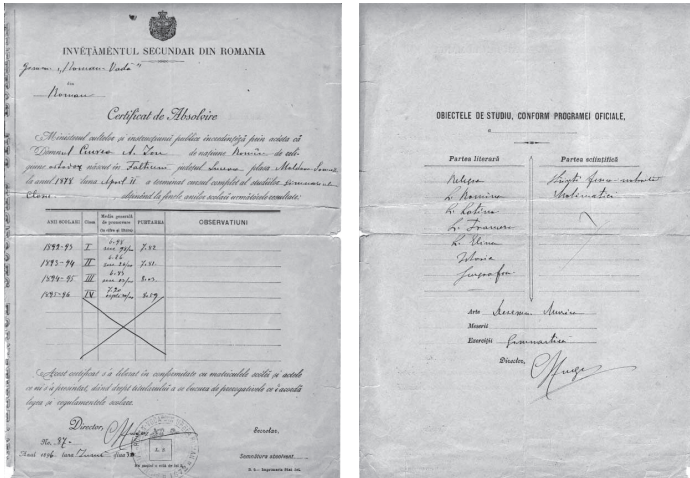 INVĔȚĂMÊNTUL SECUNDAR DIN ROMANIA
"Roman-Vodă"
din
Roman
Certificat de Absolvire
Ministerul cultelor și instrucțiunii publice încredințéză prin acésta că
Domnul Ion de națiune Român de reli-
giune ortodox născut în județul plasa
la anul 1878 luna April 11 a terminat cursul complet al studiilor
obținênd la finele anilor școlari următórele resultate:
ANII SCOLARI Clasa Media generală de promovare (în cifre și litere) PURTAREA OBSERVAȚIUNI
1892-93 I 6.98 7.82
1893-94 II 6.86 7.81
1894-95 III 6.83 8.03
1895-96 IV 7.20 8.59
Acest certificat s'a liberat în conformitate cu matriculele școlii și actele
ce ni s'a presentat, dând drept titularului a se bucura de prerogativele ce-i acordă
legea și regulamentele școlare.
Director,
Secretar,
No. 37.
Anul 1896 luna Iunie
Semnătura absolvent.
OBIECTELE DE STUDIU, CONFORM PROGRAMEI OFICIALE,
Partea literară
Partea sciințifică
Religia
L. Româna
L. Latina
L. Franceza
L. Elina
Istoria
Geografia
Matematici
Arte Desemn Musica
Meserii
Exerciții Gimnastica
Director,